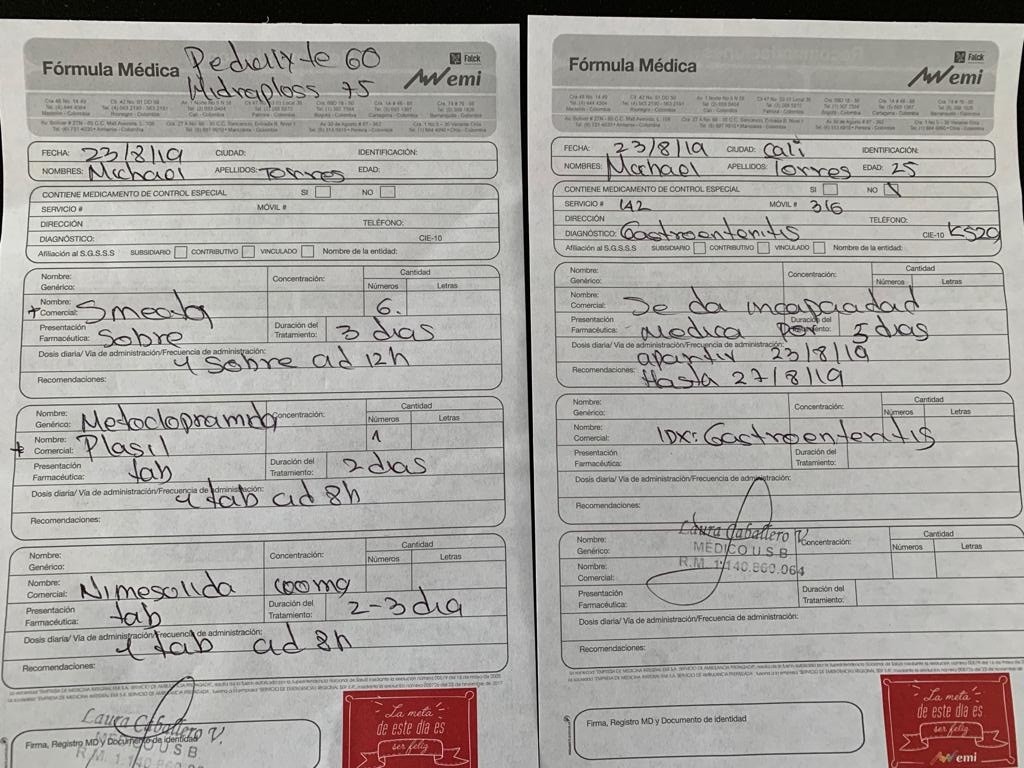 Pedialyte 60
Hidraploss 75
Fórmula Médica
Falck
emi
FECHA: 23/8/19 CIUDAD: IDENTIFICACIÓN:
NOMBRES: Michael APELLIDOS: Torres EDAD:
CONTIENE MEDICAMENTO DE CONTROL ESPECIAL SI NO
SERVICIO # MÓVIL #
DIRECCIÓN TELÉFONO:
DIAGNÓSTICO: CIE-10
Afiliación al S.G.S.S.S SUBSIDIARIO CONTRIBUTIVO VINCULADO Nombre de la entidad:
Nombre: Genérico: Concentración: Cantidad
Números Letras
Nombre: Comercial: Smecta 6.
Presentación Farmacéutica: Sobre Duración del Tratamiento: 3 dias
Dosis diaria/ Vía de administración/Frecuencia de administración:
1 Sobre ad 12h
Recomendaciones:
Nombre: Genérico: Metoclopramida Concentración: Cantidad
Números Letras
Nombre: Comercial: Plasil 1
Presentación Farmacéutica: tab Duración del Tratamiento: 2 dias
Dosis diaria/ Vía de administración/Frecuencia de administración:
1 tab ad 8h
Recomendaciones:
Nombre: Genérico: Concentración: Cantidad
Números Letras
Nombre: Comercial: Nimesulida 100mg
Presentación Farmacéutica: tab Duración del Tratamiento: 2-3 dia
Dosis diaria/ Vía de administración/Frecuencia de administración:
1 tab ad 8h
Recomendaciones:
Laura Caballero V.
MEDICO U S B
Firma, Registro MD y Documento de identidad
La meta
de este día es
ser feliz
Fórmula Médica
Falck
emi
FECHA: 23/8/19 CIUDAD: Cali IDENTIFICACIÓN:
NOMBRES: Michael APELLIDOS: Torres EDAD: 25
CONTIENE MEDICAMENTO DE CONTROL ESPECIAL SI NO
SERVICIO # 142 MÓVIL # 316
DIRECCIÓN TELÉFONO:
DIAGNÓSTICO: Gastroenteritis CIE-10 K529
Afiliación al S.G.S.S.S SUBSIDIARIO CONTRIBUTIVO VINCULADO Nombre de la entidad:
Nombre: Genérico: Concentración: Cantidad
Números Letras
Nombre: Comercial: Se da incapacidad
Presentación Farmacéutica: Medica por 5 dias
Dosis diaria/ Vía de administración/Frecuencia de administración:
apartir 23/8/19
Recomendaciones: Hasta 27/8/19
Nombre: Genérico: Concentración: Cantidad
Números Letras
Nombre: Comercial: IDX: Gastroenteritis
Presentación Farmacéutica: Duración del Tratamiento:
Dosis diaria/ Vía de administración/Frecuencia de administración:
Recomendaciones:
Laura Caballero V.
MEDICO U S B
R.M. 1.140.860.064
Nombre: Genérico: Concentración: Cantidad
Números Letras
Nombre: Comercial:
Presentación Farmacéutica: Duración del Tratamiento:
Dosis diaria/ Vía de administración/Frecuencia de administración:
Recomendaciones:
Firma, Registro MD y Documento de identidad
La meta
de este día es
ser feliz
emi